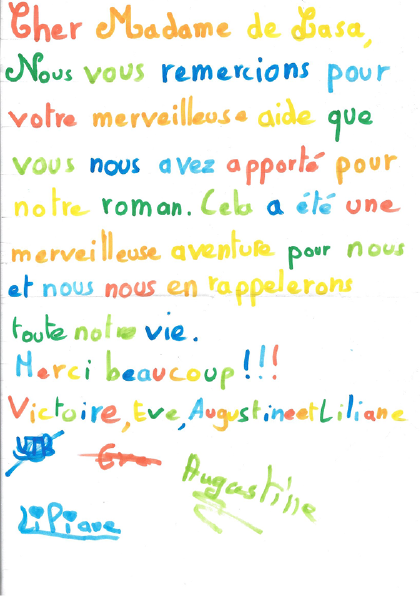 Cher Madame de Lasa,
Nous vous remercions pour
votre merveilleuse aide que
vous nous avez apporté pour
notre roman. Cela a été une
merveilleuse aventure pour nous
et nous nous en rappelerons
toute notre vie.
Merci beaucoup !!!
Victoire, Eve, Augustine et Liliane
Eve
Augustine
Liliane